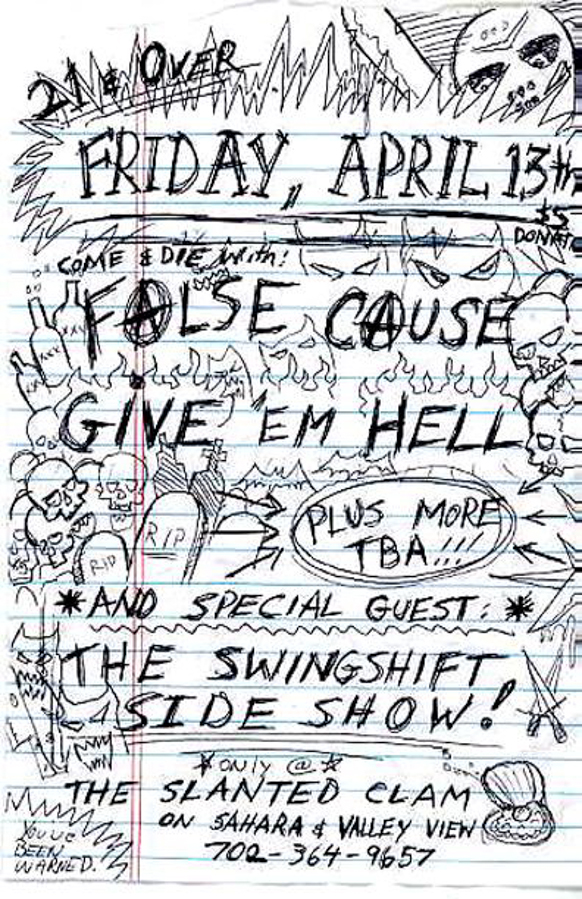 21 & OVER
FRIDAY, APRIL 13th
$5
DONAT
COME & DIE With:
FALSE CAUSE
XXX
GIVE 'EM HELL
PLUS MORE
TBA!!!
RIP
RIP
*AND SPECIAL GUEST: *
THE SWINGSHIFT
SIDE SHOW!
*ONLY @*
THE SLANTED CLAM
ON SAHARA & VALLEY VIEW
702-364-9657
YOU'VE
BEEN
WARNED.